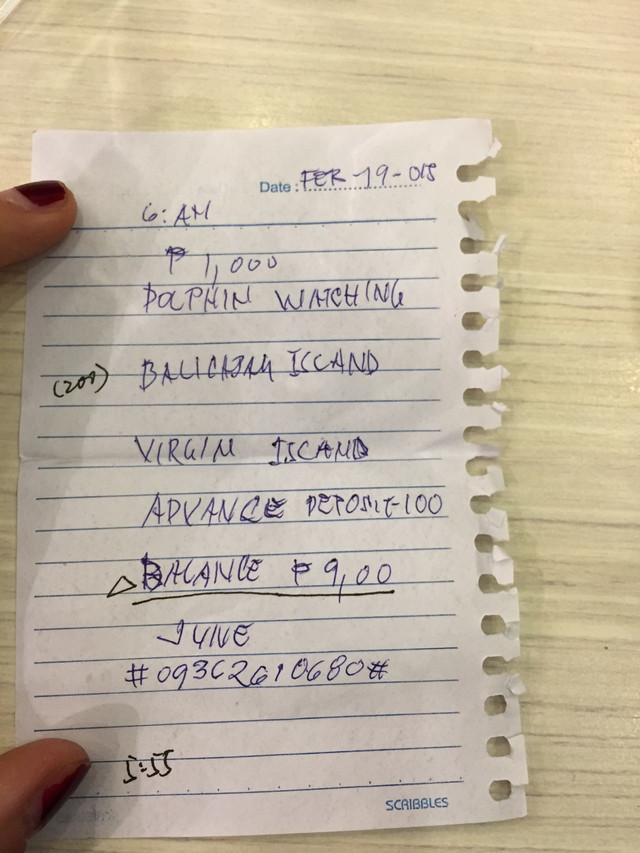 Date : FEB-19-015
6:AM
₱ 1,000
DOLPHIN WATCHING
(200) BALICASAG ISLAND
VIRGIN ISLAND
ADVANCE DEPOSIT-100
△ BALANCE ₱ 9,00
JUNE
#09362610680#
5:55
SCRIBBLES